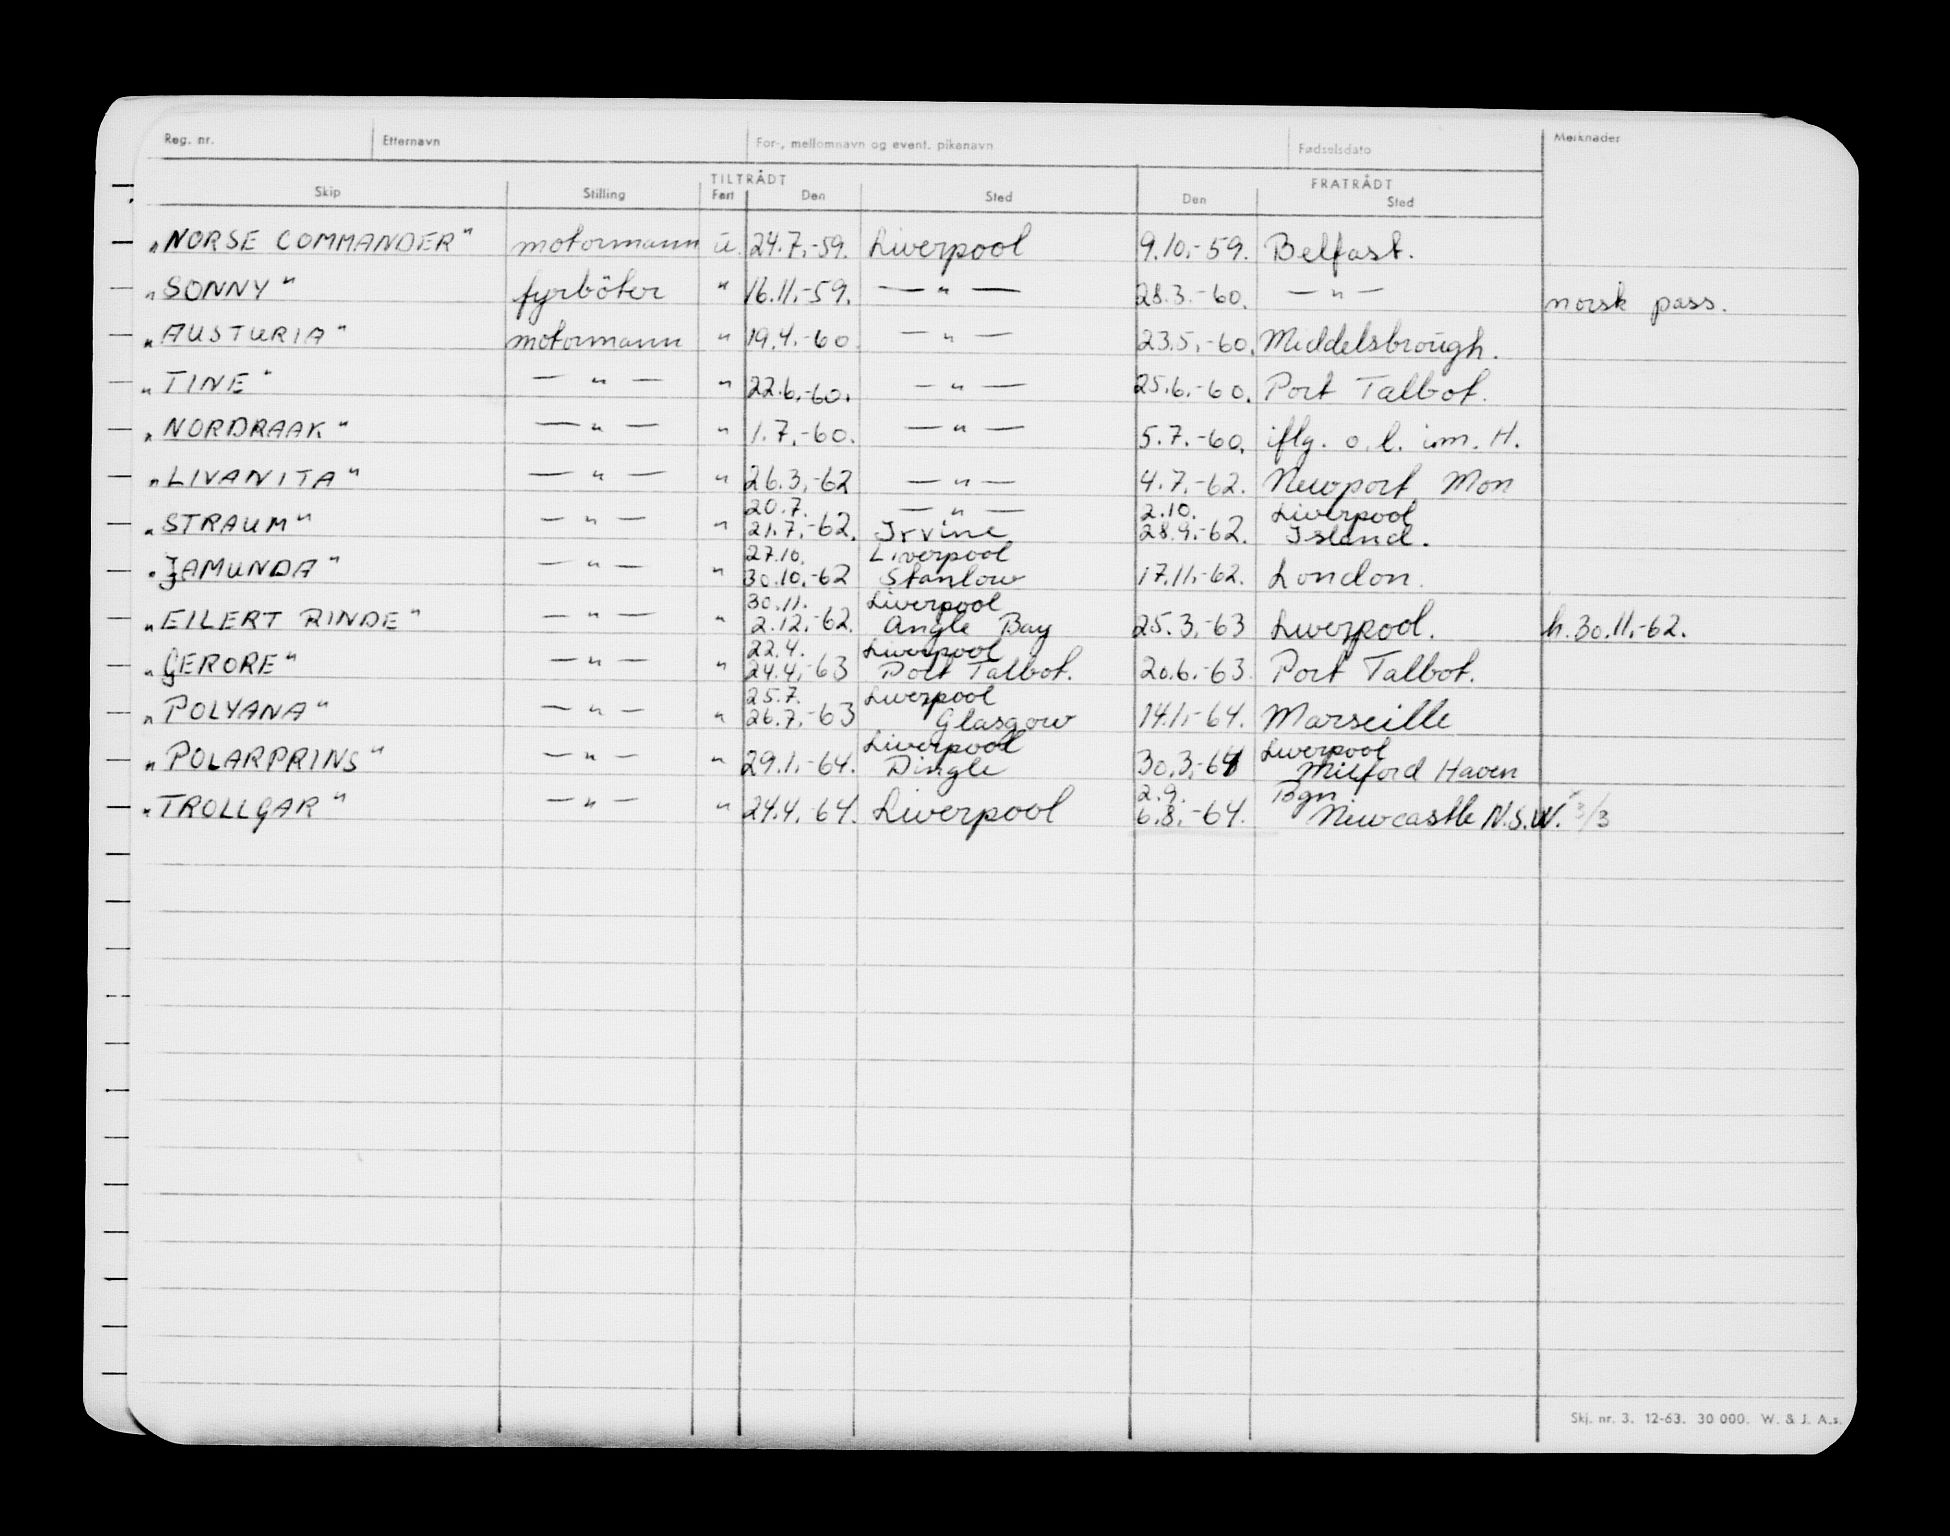 Reg. nr. Etternavn For-, mellomnavn og event. pikenavn Fødselsdato Merknader
TILTRÅDT FRATRÅDT
Skip Stilling Fart Den Sted Den Sted
"NORSE COMMANDER" motormann u. 24.7.-59. Liverpool 9.10.-59. Belfast.
"SONNY" fyrböter " 16.11.-59. — " — 28.3.-60. — " — norsk pass.
"AUSTURIA" motormann " 19.4.-60. — " — 23.5.-60. Middelsbrough.
"TINE" — " — " 22.6.-60. — " — 25.6.-60. Port Talbot.
"NORDRAAK" — " — " 1.7.-60. — " — 5.7.-60. iflg. o.l. im. H.
"LIVANITA" — " — " 26.3.-62 — " — 4.7.-62. Newport Mon
20.7. — " — 2.10. Liverpool
"STRAUM" — " — " 21.7.-62. Irvine 28.9.-62. Island.
27.10. Liverpool
"JAMUNDA" — " — " 30.10.-62 Stanlow 17.11.-62. London.
30.11. Liverpool
"EILERT RINDE" — " — " 2.12.-62. Angle Bay 25.3.-63 Liverpool. h.30.11.-62.
22.4. Liverpool
"GERORE" — " — " 24.4.-63 Port Talbot. 20.6.-63 Port Talbot.
25.7. Liverpool
"POLYANA" — " — " 26.7.-63 Glasgow 14.1.-64. Marseille
Liverpool Liverpool
"POLARPRINS" — " — " 29.1.-64. Dingle 30.3.-64 Milford Haven
2.9. Bgn
"TROLLGAR" — " — " 24.4.-64. Liverpool 6.8.-64. Newcastle N.S.W. 3/3
Skj. nr. 3. 12-63. 30 000. W. & J. A.s.